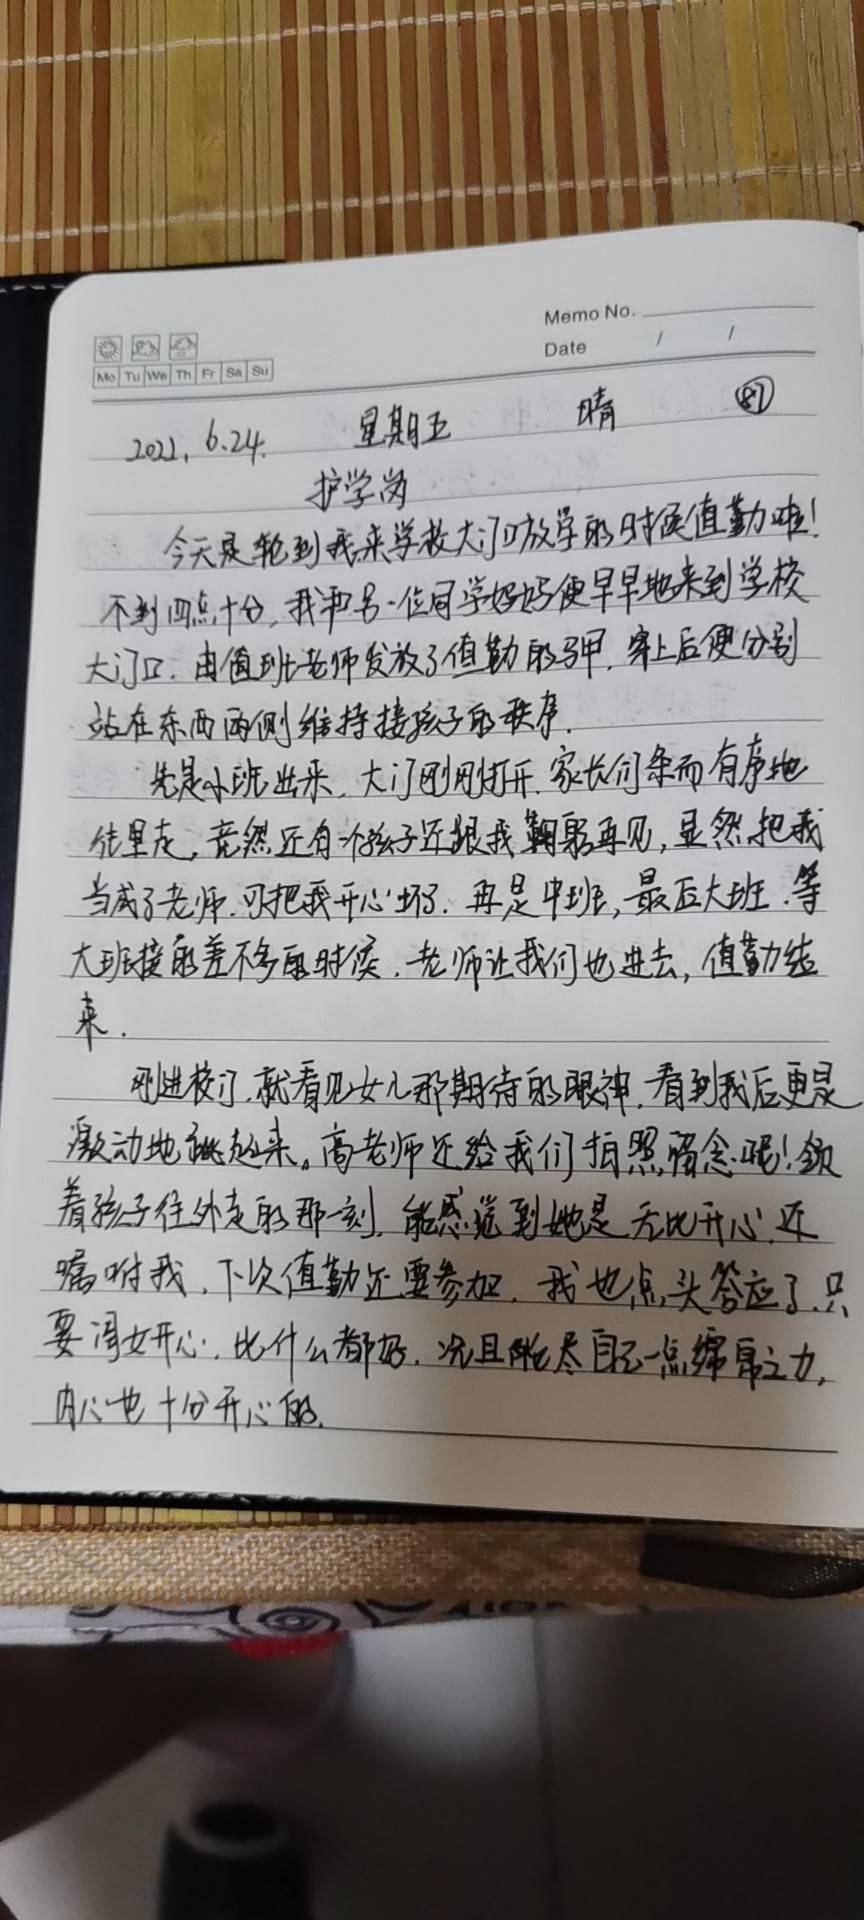 Memo No.
Date / /
Mo Tu We Th Fr Sa Su
2022.6.24. 星期五 晴 87
护学岗
今天是轮到我来学校大门口放学的时候值勤啦!
不到四点十分,我和另一位同学妈妈便早早地来到学校
大门口.由值班老师发放了值勤的马甲.穿上后便分别
站在东西两侧维持接孩子的秩序.
先是小班出来,大门刚刚打开.家长们条而有序地
往里走,竟然还有个孩子还跟我鞠躬再见,显然把我
当成了老师.可把我开心坏了.再是中班,最后大班.等
大班接的差不多的时候.老师让我们也进去,值勤结
束.
刚进校门.就看见女儿那期待的眼神.看到我后更是
激动地跳起来。高老师还给我们拍照留念呢!领
着孩子往外走的那一刻.能感觉到她是无比开心.还
嘱咐我,下次值勤还要参加.我也点头答应了.只
要闺女开心.比什么都好.况且能尽自己一点绵帛之力,
内心也十分开心的.